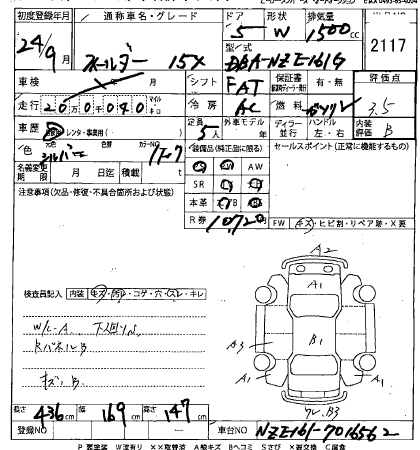 初度登録年月 通称車名・グレード ドア 形状 排気量
24/9月 フィールダー 15X 5 W 1500cc 2117
型/式 DBA-NZE161G
車検 月 シフト FAT 保証書 有・無 評価点
走行 20万0040 マイル キロ 冷房 AC 燃料 ガソリン 3.5
車歴 レンタ・事業用( ) 定員 5人 外車モデル ディーラー 並行 ハンドル 左・右 内装評価 B
色 シルバー 元色 カラーNO 1F7 装備品(純正品に限る) セールスポイント(正常に機能するもの)
名義変更期限 月 日迄 積載 t PS PW AW
注意事項(欠品・修復・不具合箇所および状態) SR
本革 TV B
R券 10,720 FW キズ・ヒビ割・リペア跡・X要
A2
A1
検査員記入 内装 キズ・汚れ・コゲ・穴・スレ・キレ
W/C-A 下廻りS
RパネルB A3 B1
キズ、B A1 A1
長さ 436cm 幅 169cm 高さ 147cm ワレ、B3
登録NO 車台NO NZE161-7016562
P 要塗装 W波有り XX取替済 A線キズ Bヘコミ Sさび X要交換 C腐食